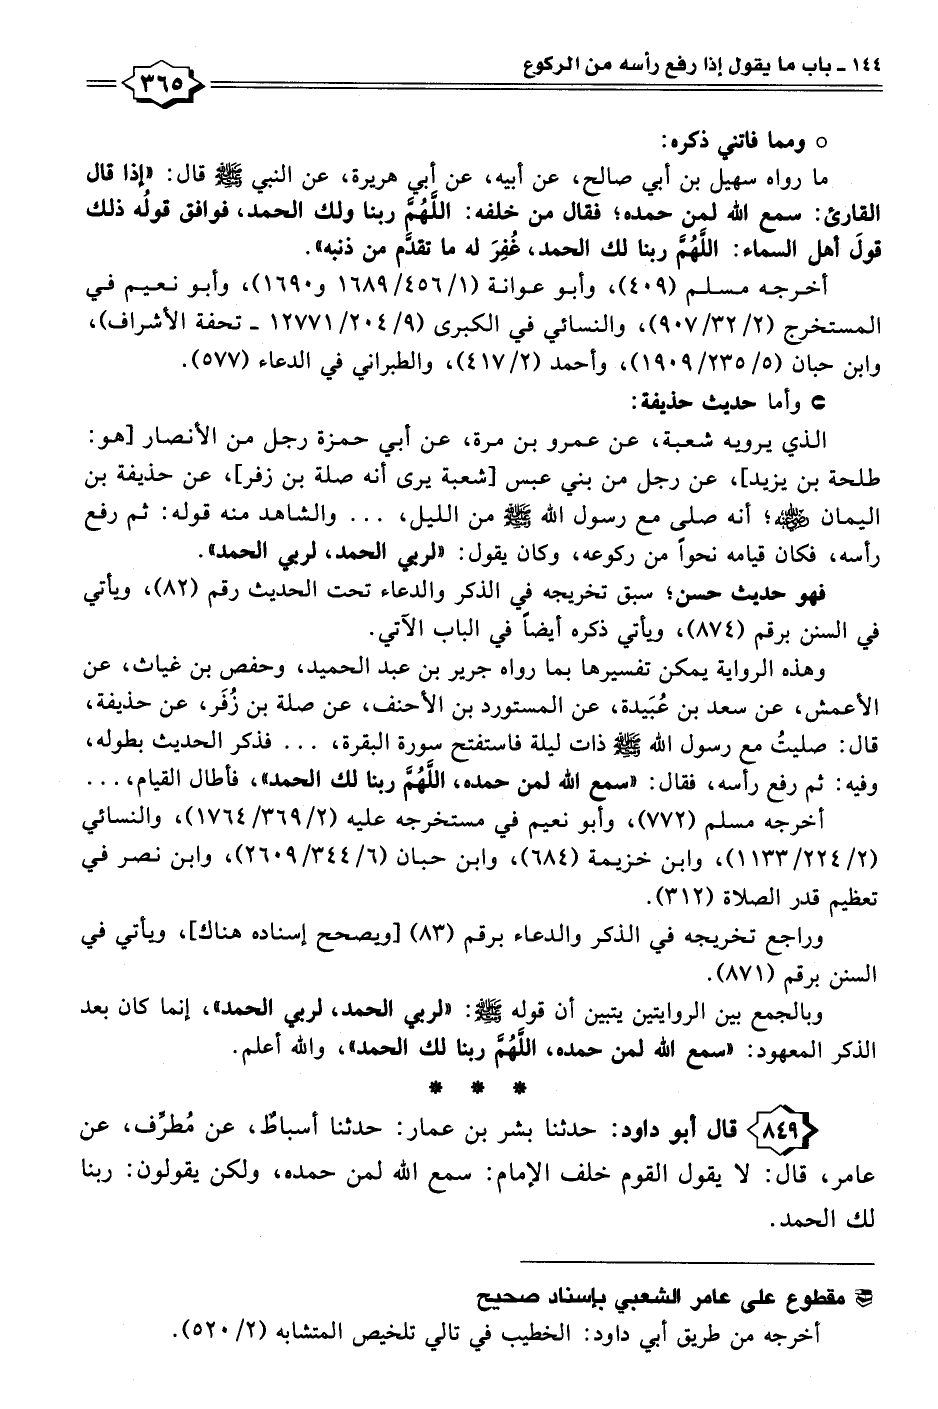 ١٤٤ - باب ما يقول إذا رفع رأسه من الركوع
٣٦٥
○ ومما فاتني ذكره:
ما رواه سهيل بن أبي صالح، عن أبيه، عن أبي هريرة، عن النبي ﷺ قال: «إذا قال
القارئ: سمع الله لمن حمده؛ فقال من خلفه: اللَّهُمَّ ربنا ولك الحمد، فوافق قولُه ذلك
قولَ أهل السماء: اللَّهُمَّ ربنا لك الحمد، غُفِرَ له ما تقدَّم من ذنبه».
أخرجه مسلم (٤٠٩)، وأبو عوانة (١/٤٥٦/١٦٨٩ و١٦٩٠)، وأبو نعيم في
المستخرج (٢/٣٢/٩٠٧)، والنسائي في الكبرى (٩/٢٠٤/١٢٧٧١ - تحفة الأشراف)،
وابن حبان (٥/٢٣٥/١٩٠٩)، وأحمد (٢/٤١٧)، والطبراني في الدعاء (٥٧٧).
وأما حديث حذيفة:
الذي يرويه شعبة، عن عمرو بن مرة، عن أبي حمزة رجل من الأنصار [هو:
طلحة بن يزيد]، عن رجل من بني عبس [شعبة يرى أنه صلة بن زفر]، عن حذيفة بن
اليمان ﷺ؛ أنه صلى مع رسول الله ﷺ من الليل، ... والشاهد منه قوله: ثم رفع
رأسه، فكان قيامه نحواً من ركوعه، وكان يقول: «لربي الحمد، لربي الحمد».
فهو حديث حسن؛ سبق تخريجه في الذكر والدعاء تحت الحديث رقم (٨٢)، ويأتي
في السنن برقم (٨٧٤)، ويأتي ذكره أيضاً في الباب الآتي.
وهذه الرواية يمكن تفسيرها بما رواه جرير بن عبد الحميد، وحفص بن غياث، عن
الأعمش، عن سعد بن عُبَيدة، عن المستورد بن الأحنف، عن صلة بن زُفَر، عن حذيفة،
قال: صليتُ مع رسول الله ﷺ ذات ليلة فاستفتح سورة البقرة، ... فذكر الحديث بطوله،
وفيه: ثم رفع رأسه، فقال: «سمع الله لمن حمده، اللَّهُمَّ ربنا لك الحمد»، فأطال القيام، ...
أخرجه مسلم (٧٧٢)، وأبو نعيم في مستخرجه عليه (٢/٣٦٩/١٧٦٤)، والنسائي
(٢/٢٢٤/١١٣٣)، وابن خزيمة (٦٨٤)، وابن حبان (٦/٣٤٤/٢٦٠٩)، وابن نصر في
تعظيم قدر الصلاة (٣١٢).
وراجع تخريجه في الذكر والدعاء برقم (٨٣) [ويصحح إسناده هناك]، ويأتي في
السنن برقم (٨٧١).
وبالجمع بين الروايتين يتبين أن قوله ﷺ: «لربي الحمد، لربي الحمد»، إنما كان بعد
الذكر المعهود: «سمع الله لمن حمده، اللَّهُمَّ ربنا لك الحمد»، والله أعلم.
* * *
٨٤٩ قال أبو داود: حدثنا بشر بن عمار: حدثنا أسباطٌ، عن مُطرِّف، عن
عامر، قال: لا يقول القوم خلف الإمام: سمع الله لمن حمده، ولكن يقولون: ربنا
لك الحمد.
مقطوع على عامر الشعبي بإسناد صحيح
أخرجه من طريق أبي داود: الخطيب في تالي تلخيص المتشابه (٢/٥٢٠).